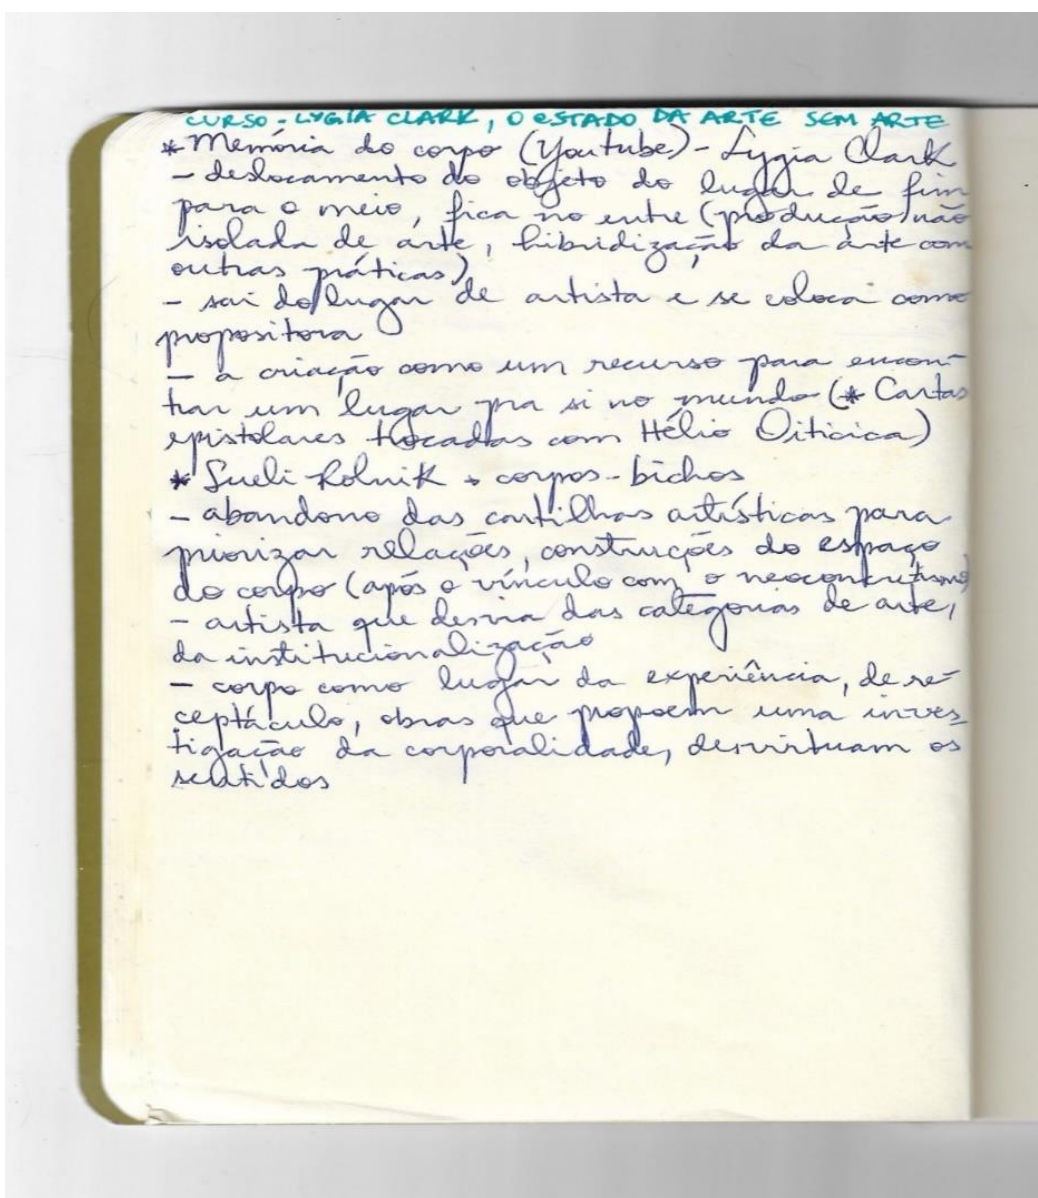 CURSO - LYGIA CLARK, O ESTADO DA ARTE SEM ARTE
* Memória do corpo (Youtube) - Lygia Clark
- deslocamento do objeto do lugar de fim
para o meio, fica no entre (produção não
isolada de arte, hibridização da arte com
outras práticas)
- sai do lugar de artista e se coloca como
propositora
- a criação como um recurso para encon-
trar um lugar pra si no mundo (* Cartas
epistolares trocadas com Hélio Oiticica)
* Sueli Rolnik → corpos-bichos
- abandono das cartilhas artísticas para
priorizar relações, construções do espaço
do corpo (após o vínculo com o neoconcretismo)
- artista que desvia das categorias de arte,
da institucionalização
- corpo como lugar da experiência, de re-
ceptáculo, obras que propoem uma inves
tigação da corporalidade, desvirtuam os
sentidos